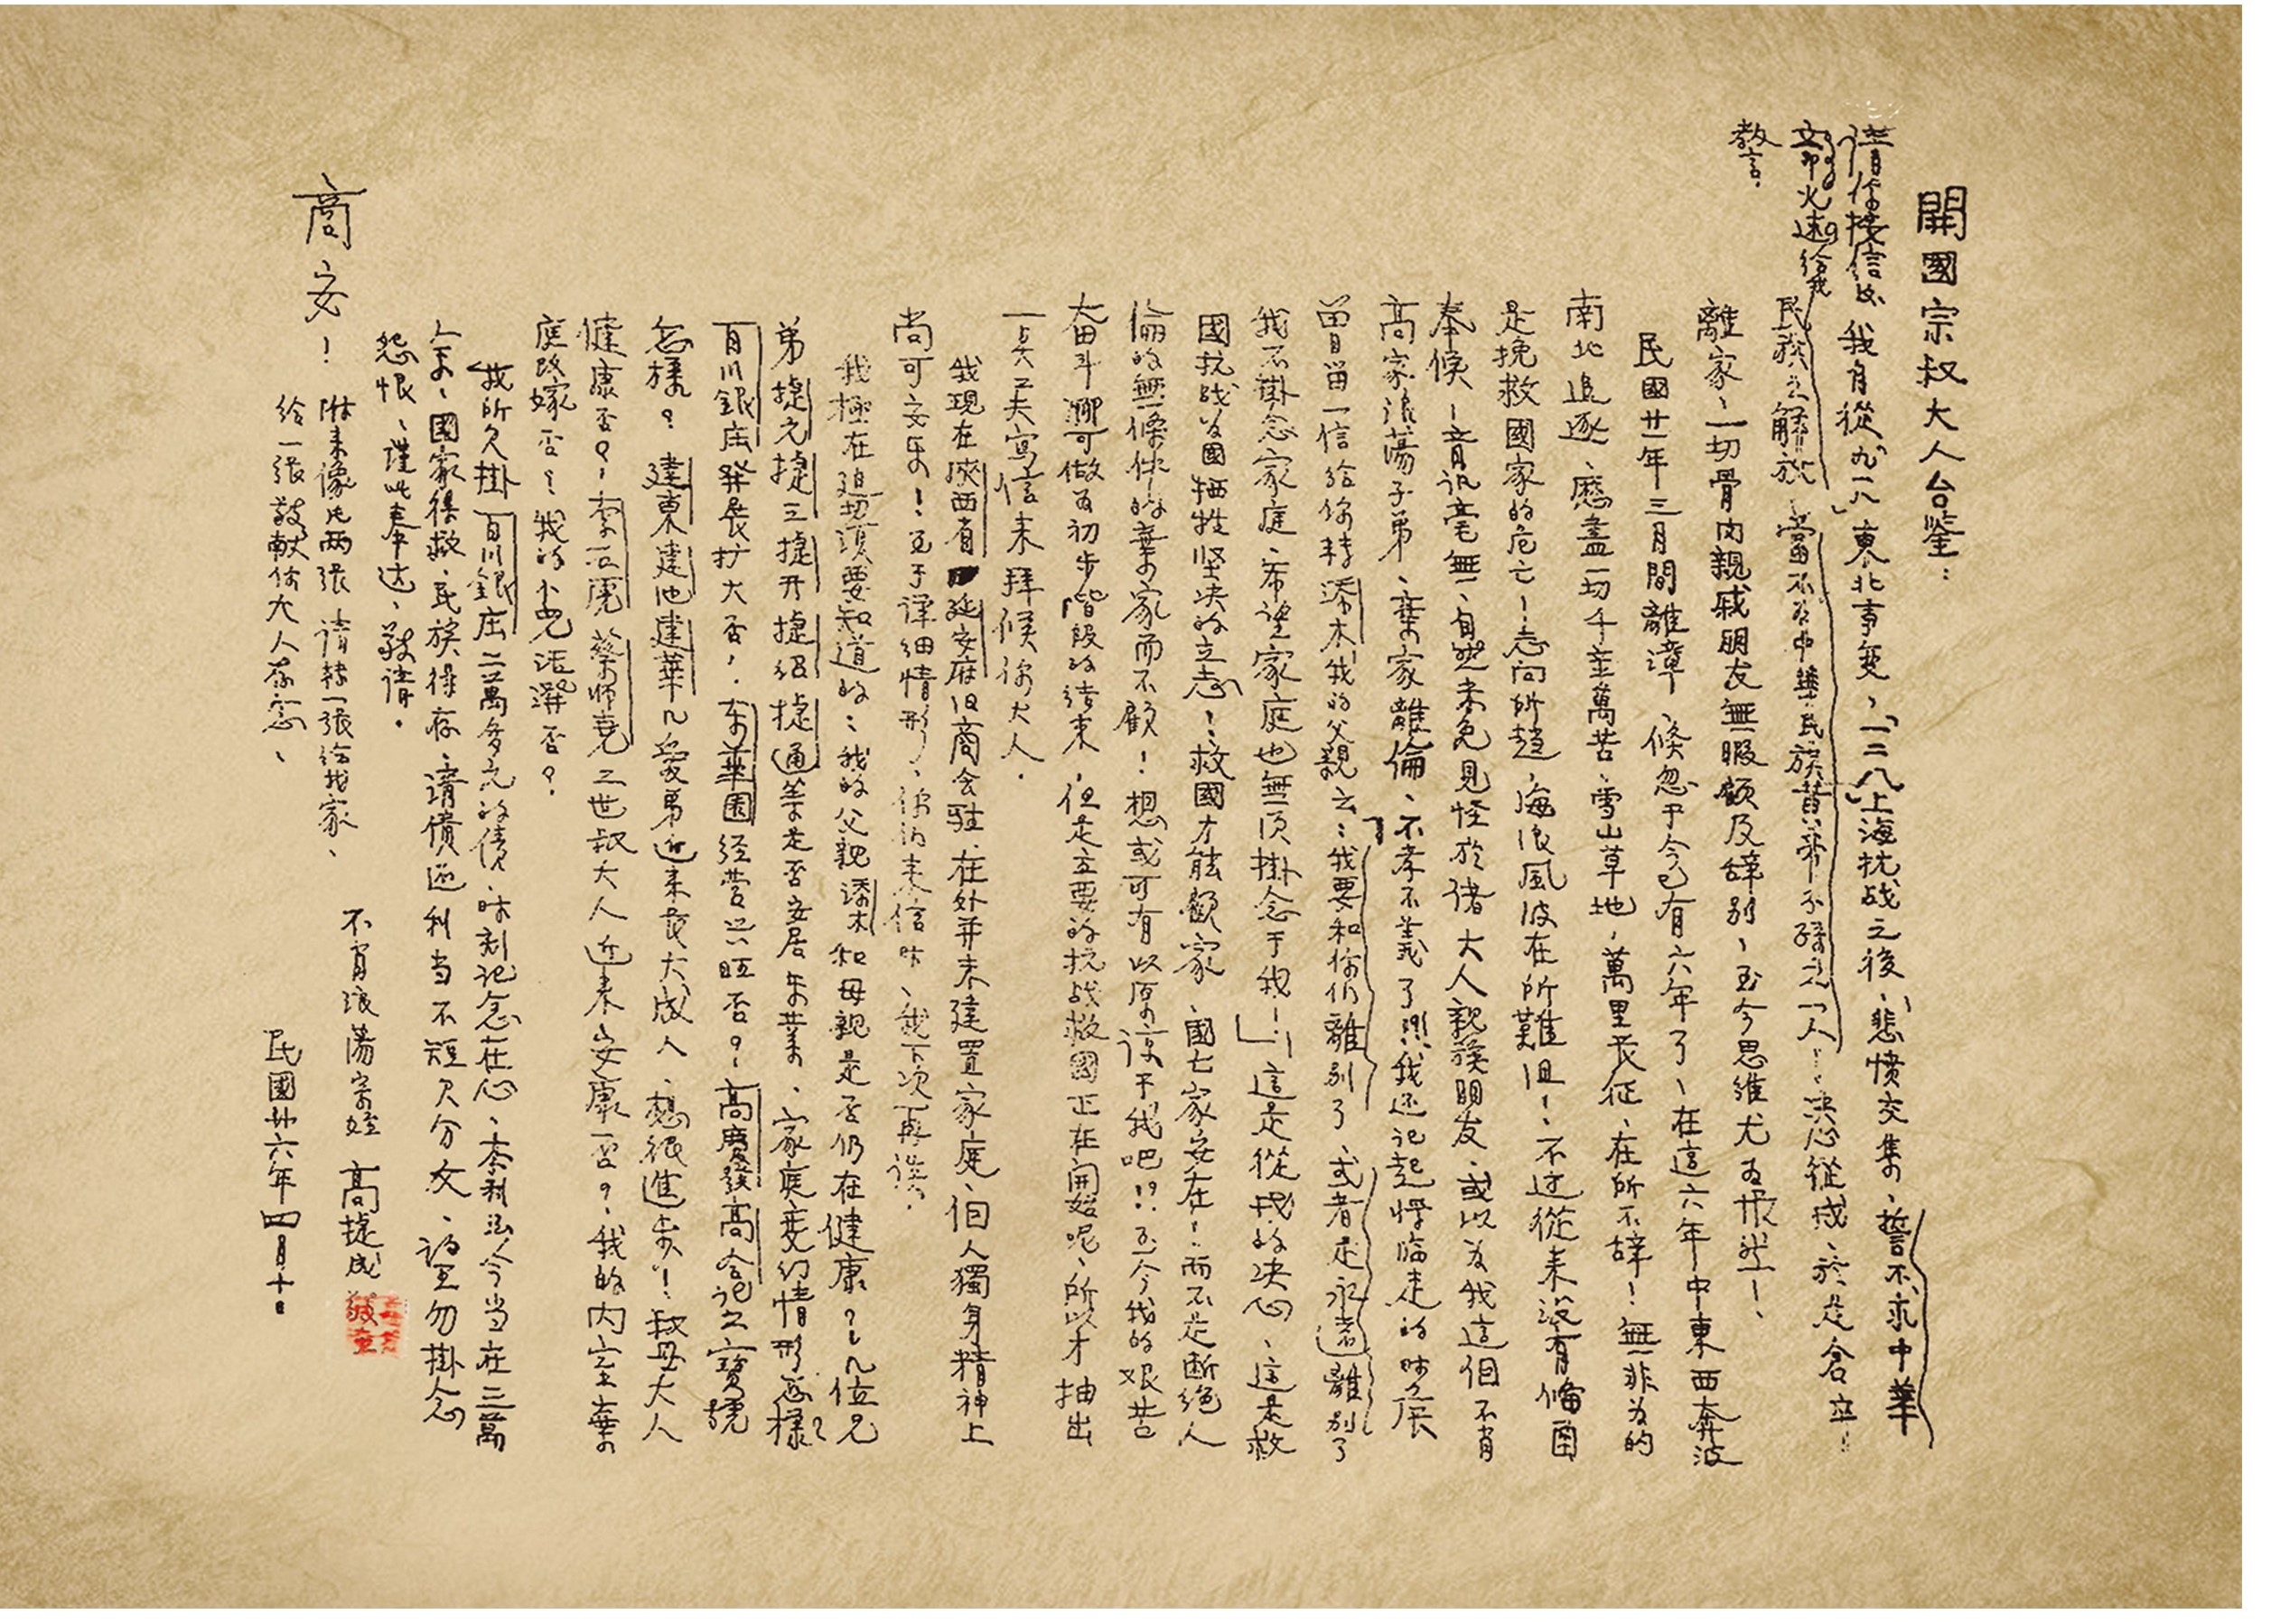 開國宗叔大人台鑒：
請你接信後
立即火速給我
教言.
我自從“九一八”東北事变，“一二八”上海抗战之後，悲憤交集，誓不求中華
民族之解放，當不为中華民族黃帝子孫之一人！决心從戎，於是倉卒
離家，一切骨肉親戚朋友無暇顧及辞别，至今思維尤为恨然！
民國廿一年三月間離漳，倏忽于今已有六年了，在這六年中東西奔波
南北追逐，歷盡一切千辛萬苦，雪山草地，萬里長征，在所不辞！無非为的
是挽救國家的危亡！志向所趋，海浪風波在所難阻！不过從来没有脩函
奉候，音訊毫無，自然未免見怪於诸大人親族朋友，或以为我這個不肖
高家浪荡子弟，棄家離倫，不孝不義了！！！我还记起悍临走的时候
曾留一信给你转添木我的父親云：「我要和你们離别了，或者是永遠離别了
我不掛念家庭，希望家庭也無须掛念于我！」這是從戎的决心，這是救
國抗战为國牺牲坚决的立志！救國才能顧家，國亡家安在！而不是断绝人
倫的無條件的棄家而不顧！想或可有以原谅于我吧！？至今我的艰苦
奋斗，漸可做为初步階段的结束，但是主要的抗战救國正在開始呢，所以才抽出
一点工夫寫信来拜候你大人.
我现在陝西省延安府旧商会驻，在外并未建置家庭，個人獨身精神上
尚可安乐！至于详细情形，你的来信时，我下次再谈.
我極在迫切须要知道的：我的父親添木和母親是否仍在健康？几位兄
弟捷元捷三捷升捷绍捷通等是否安居乐業，家庭变幻情形怎樣？
百川銀庄發展扩大否？东華園经营兴旺否？高慶發高合记之寶號
怎樣？建東建池建華几爱弟近来長大成人，想很進步！叔母大人
健康否？李石虎蔡师堯二世叔大人近来安康否？我的内室棄
庭改嫁否？我的小兒还活否？
我所久掛百川銀庄二萬多元的债，时刻记念在心，本利法今当在三萬
余，國家得救，民族得存，請债还利当不短欠分文，请望勿掛念
怨恨，谨此奉达，敬请.
商安！
附来像片两张，请转一张给我家，
给一张敬献你大人存念，
不肖浪蕩宗姪 高捷成
民國廿六年四月十日